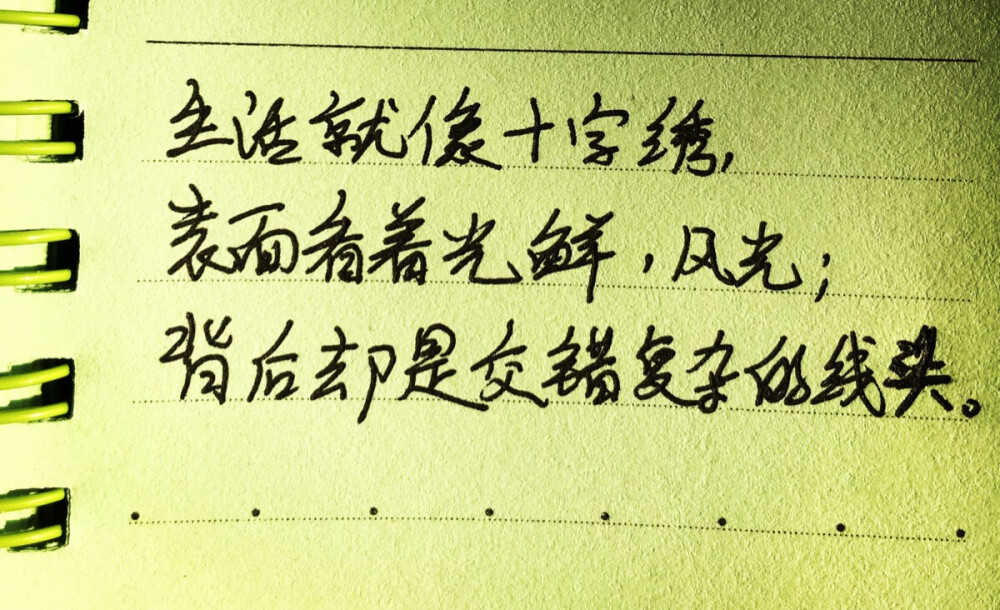 生活就像十字绣,
表面看着光鲜,风光;
背后却是交错复杂的线头。